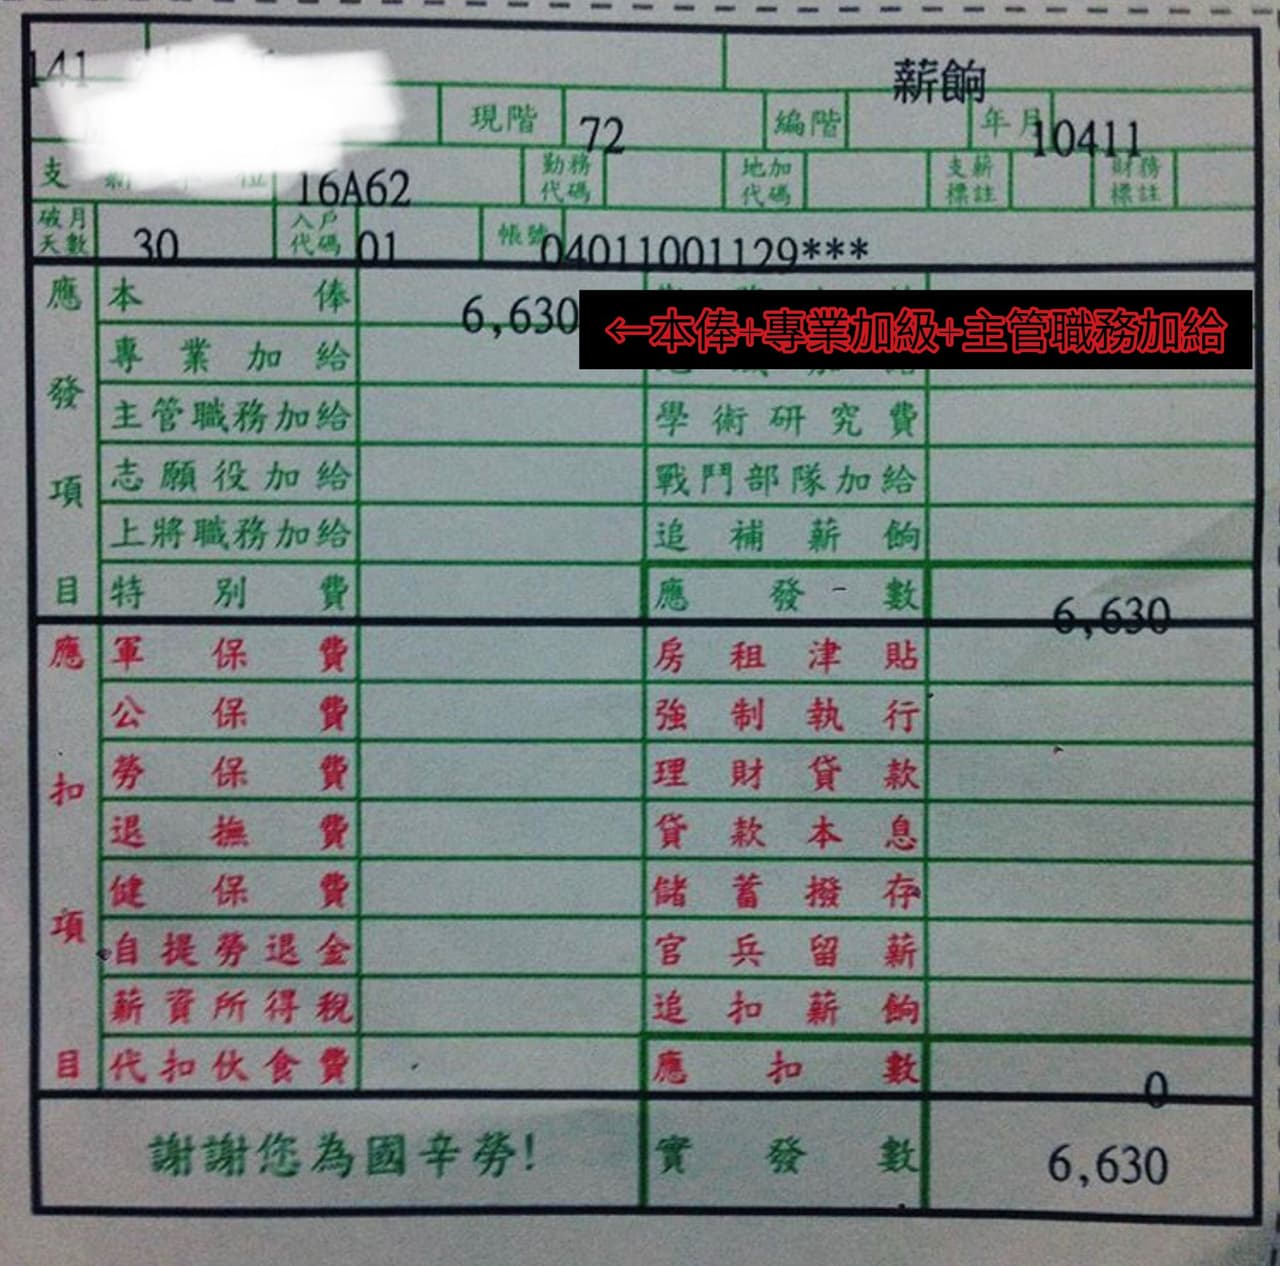 141
薪餉
現階 72 編階 年月 10411
支薪單位 16A62 勤務代碼 地加代碼 支薪標註 財務標註
破月天數 30 入戶代碼 01 帳號 04011001129***
應發項目
本俸 6,630 ←本俸+專業加級+主管職務加給
專業加給
主管職務加給 學術研究費
志願役加給 戰鬥部隊加給
上將職務加給 追補薪餉
特別費 應發數 6,630
應扣項目
軍保費 房租津貼
公保費 強制執行
勞保費 理財貸款
退撫費 貸款本息
健保費 儲蓄撥存
自提勞退金 官兵留薪
薪資所得稅 追扣薪餉
代扣伙食費 應扣數 0
謝謝您為國辛勞! 實發數 6,630